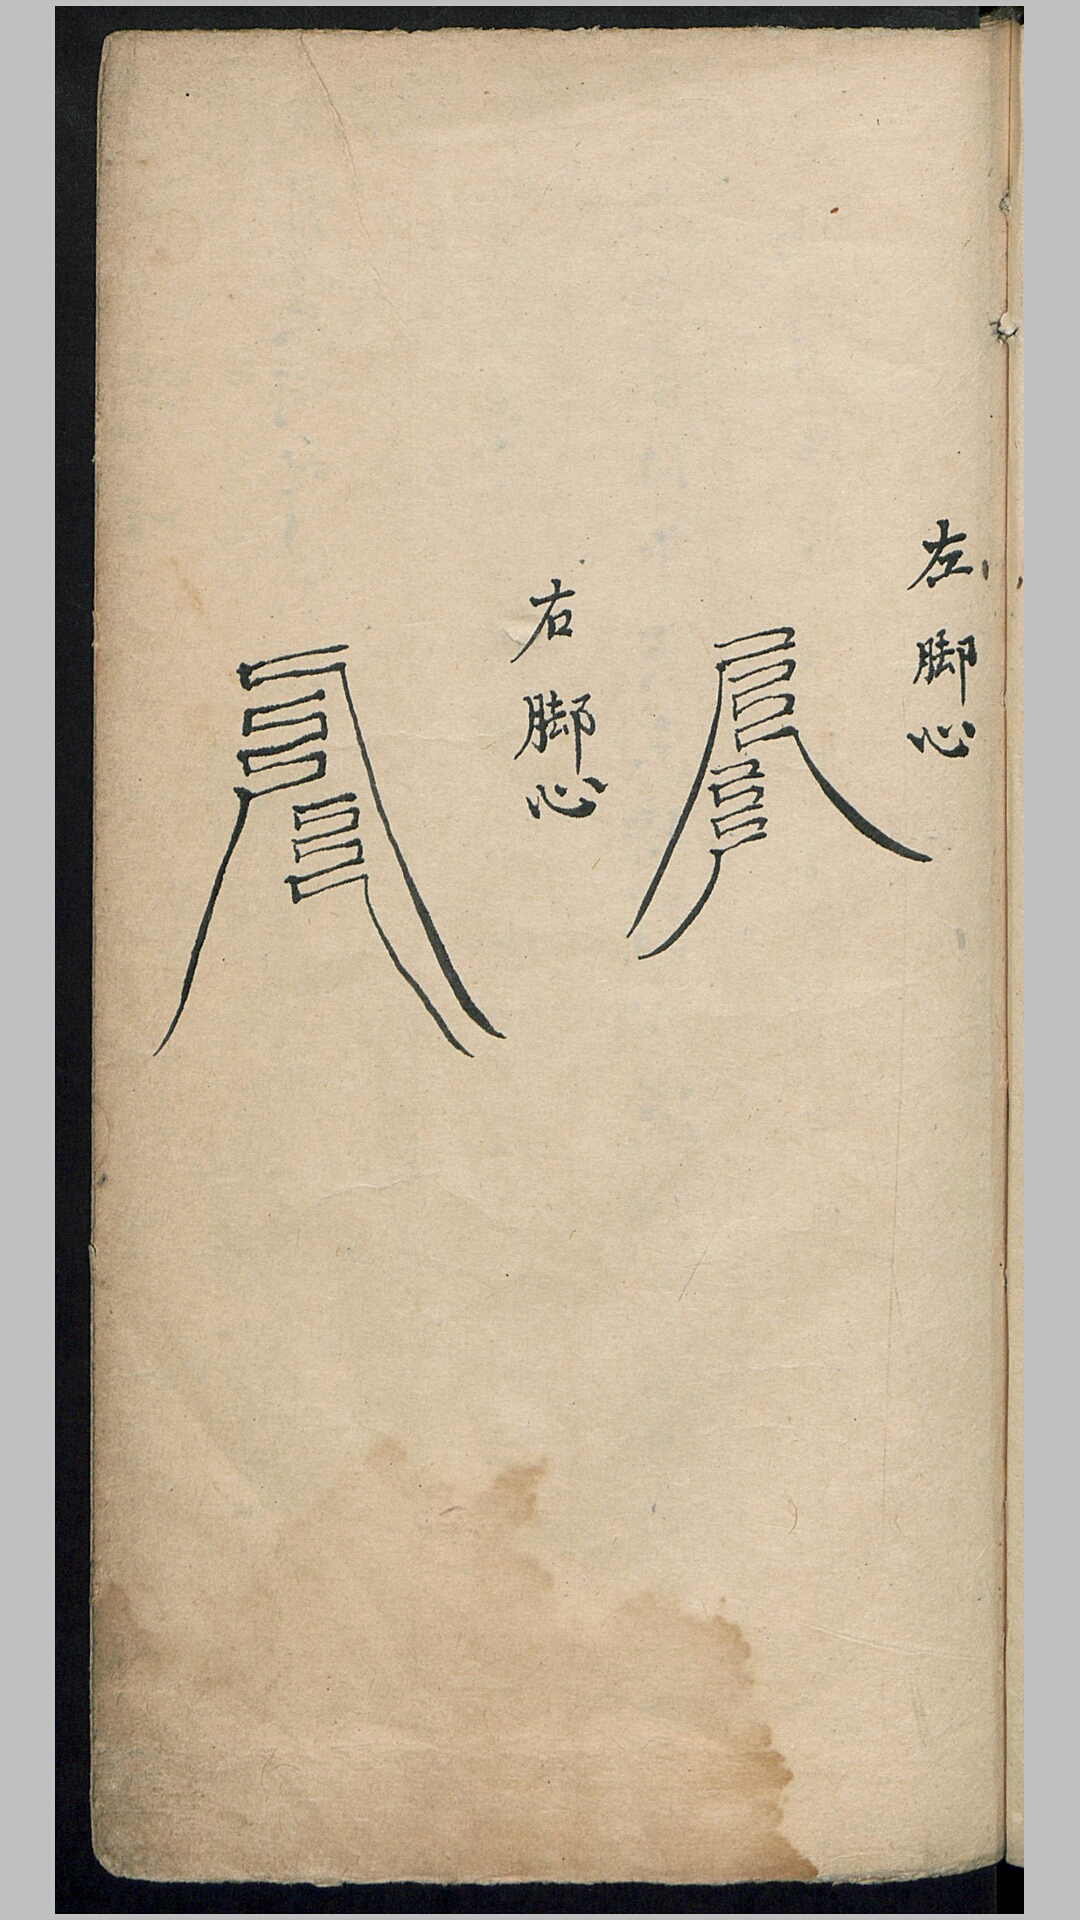 左脚心
右脚心